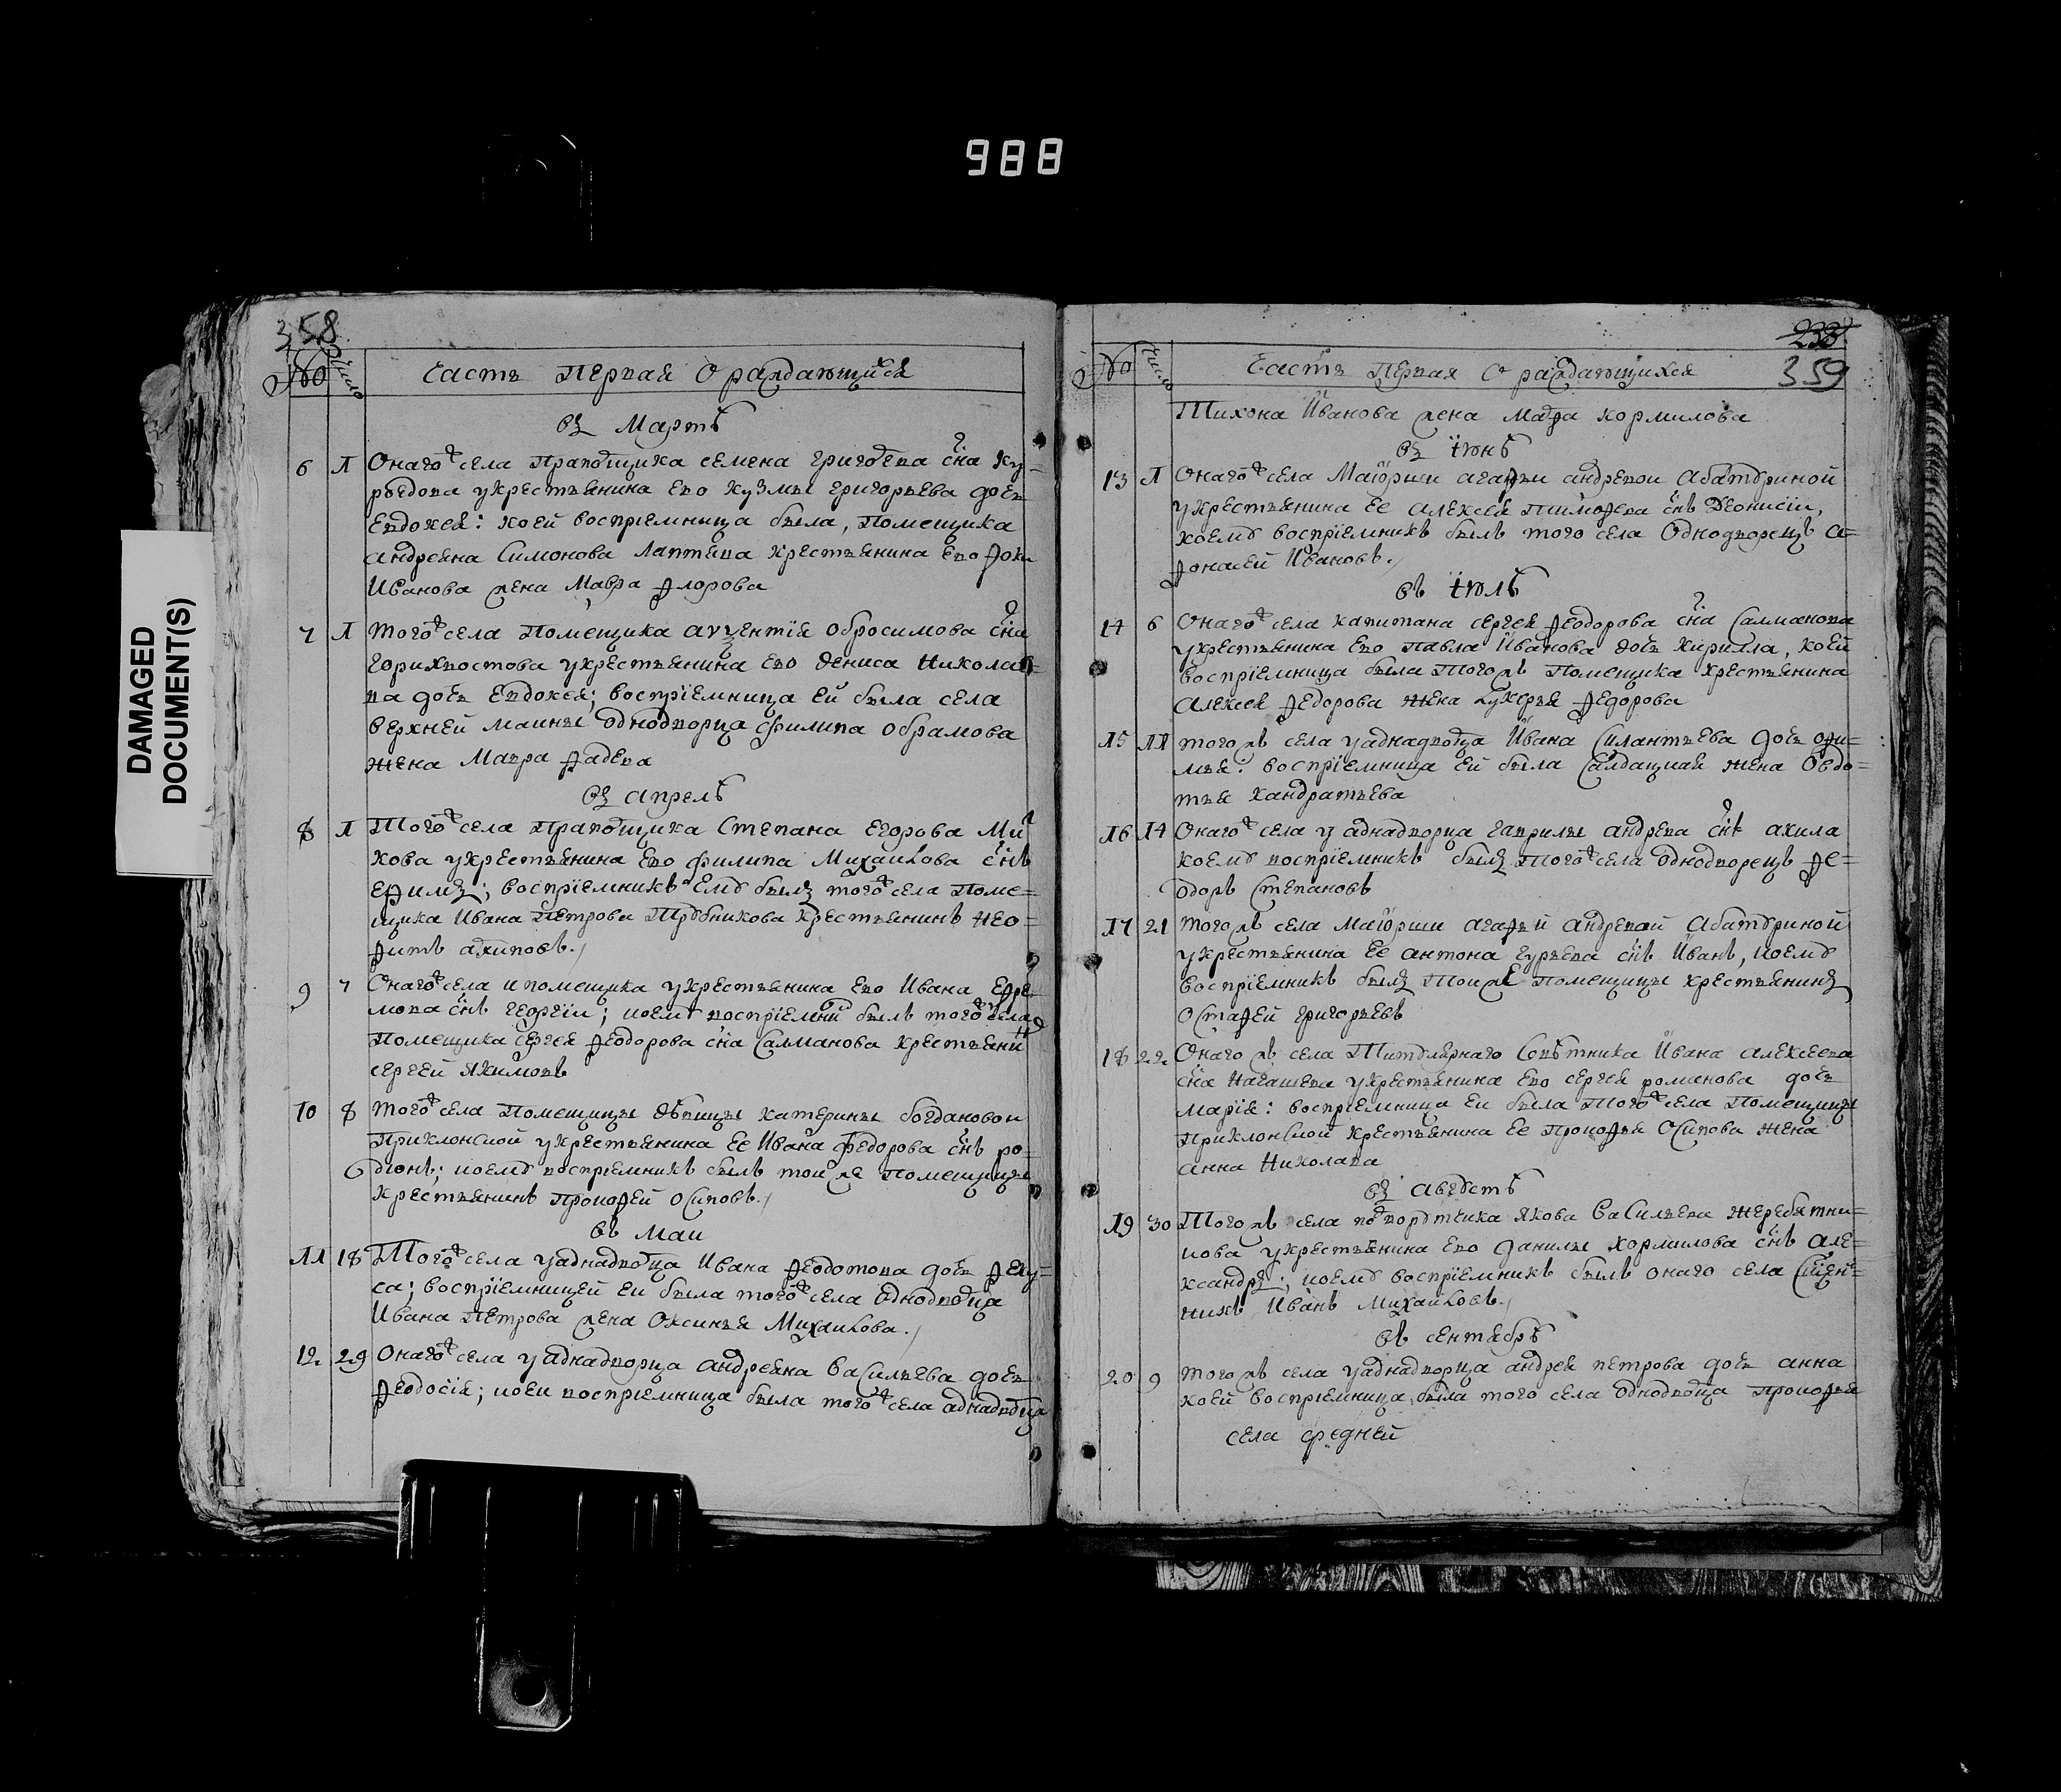 988
DAMAGED
DOCUMENT(S)
358
№ число
Часть Первая О раждающихся
въ Мартѣ
6 1 Онагож села Прапорщика семена григорева сна Ку-
роедова укрестьянина Ево Кузмы григорьева дочь
Евдокея: коей восприемница была, Помещика
андреяна Симонова Лаптева крестьянина Ево
Иванова жена Мавра Флорова
7 1 того ж села Помещика авксентія обросимова сна
горихвостова укрестьянина Ево дениса николае-
ва дочь Евдокея; воспріемница ей была села
верхней маины однодворца филипа обрамова
жена Мавра Фадева
въ апрелѣ
8 1 Того ж села Прапорщика Степана Егорова
кова укрестьянина Ево филипа Михаилова снъ
Ефимъ; воспріемникъ Ему былъ того ж села Поме=
щика Ивана Петрова Трубникова крестьянинъ нео=
фитъ архиповъ.
9 7 Онагож села и помещика укрестьянина Ево Ивана Ефре
мова снъ георгіи; коему воспріемни былъ того ж села
Помещика сергея Феодорова сна Салманова крестьяни
сергей Якимовъ
10 8 того ж села Помещицы дѣвицы катерины богдановои
Приклонской укрестьянина Ее Ивана федорова снъ ро-
діонъ; коему воспріемникъ былъ тои же Помещицы
крестьянинъ Прокофей Осиповъ.
въ Маи
11 18 Того ж села уаднадворца Ивана Феодотова дочь Феку-
са; воспріемницей еи была того ж села Однодворца
Ивана Петрова жена Оксинья Михаилова.
12 29 Онаго ж села у аднадворца андреяна Васильева дочь
Феодосія; коеи воспріемница была того ж села аднадворца
238
№ число
Часть Первая О раждающихся 359
Тихона Иванова жена Мавра кормилова
въ іюнѣ
13 1 Онаго ж села Маіорши агафьи андревои Абатуриной
укрестьянина Ее алексея тимофева снъ Деонисіи,
коему воспріемникъ былъ того села Однодворецъ а=
фонасеи Ивановъ.
въ іюлѣ
14 6 Онаго ж села капитана сергея Феодорова сна Салманова
укрестьянина Ево Павла Иванова дочь кирилла, коей
воспріемница была Тогожъ Помещика крестьянина
алексея Федорова жена Лукерья Федорова
15 11 тогожъ села уаднадворца Ивана Силантьева дочь офи=
мья: воспріемница ей была Салдацкая жена Овдо=
тья кандратьева
16 14 Онаго ж села у аднадворца гаврилы андрева снъ акила
коему воспріемникъ былъ Того ж села однодворецъ Фе=
одоръ Степановъ
17 21 тогожъ села Маіорши агафьи андревой Абатуриной
укрестьянина Ее антона гурьева снъ Иванъ, коему
воспріемникъ былъ Тоиже Помещицы крестьянинъ
Остафей григорьевъ
18 22 Онагожъ села Титулярнаго Советника Ивана алексеева
сна нагашева укрестьянина Ево сергея романова дочь
марія: воспріемница еи была Того ж села Помещицы
Приклонской крестьянина Ее Прокофья Осипова жена
анна Николава
въ августѣ
19 30 Тогожъ села подпорутчика Якова Васильева жеребятни=
кова укрестьянина Ево данилы кормилова снъ але=
ксандръ; коему воспріемникъ былъ онаго села Сщен=
никъ Иванъ Михаиловъ.
въ сентябрѣ
20 9 тогожъ села уаднадворца андрея петрова дочь анна
коей воспріемница была того села однодворца Прокофья
села средней